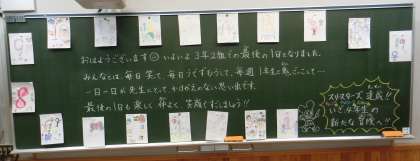 おはようございます☺ いよいよ 3年2組での最後の1日となりました。
みんなとは、毎日笑って、毎日うるうるして、毎週
一日一日が先生にとって かけがえのない思い出です。
最後の1日も楽しく 仲よく 笑顔ですごしましょう!!
達成!!
いざ4年生の
新たな冒険へ!!